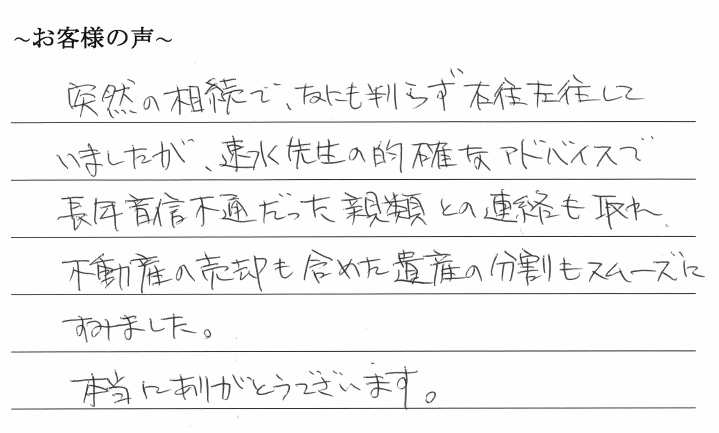 ~お客様の声~
突然の相続で、なにも判らず右往左往して
いましたが、速水先生の的確なアドバイスで
長年音信不通だった親類との連絡も取れ
不動産の売却も含めた遺産の分割もスムーズに
すみました。
本当にありがとうございます。